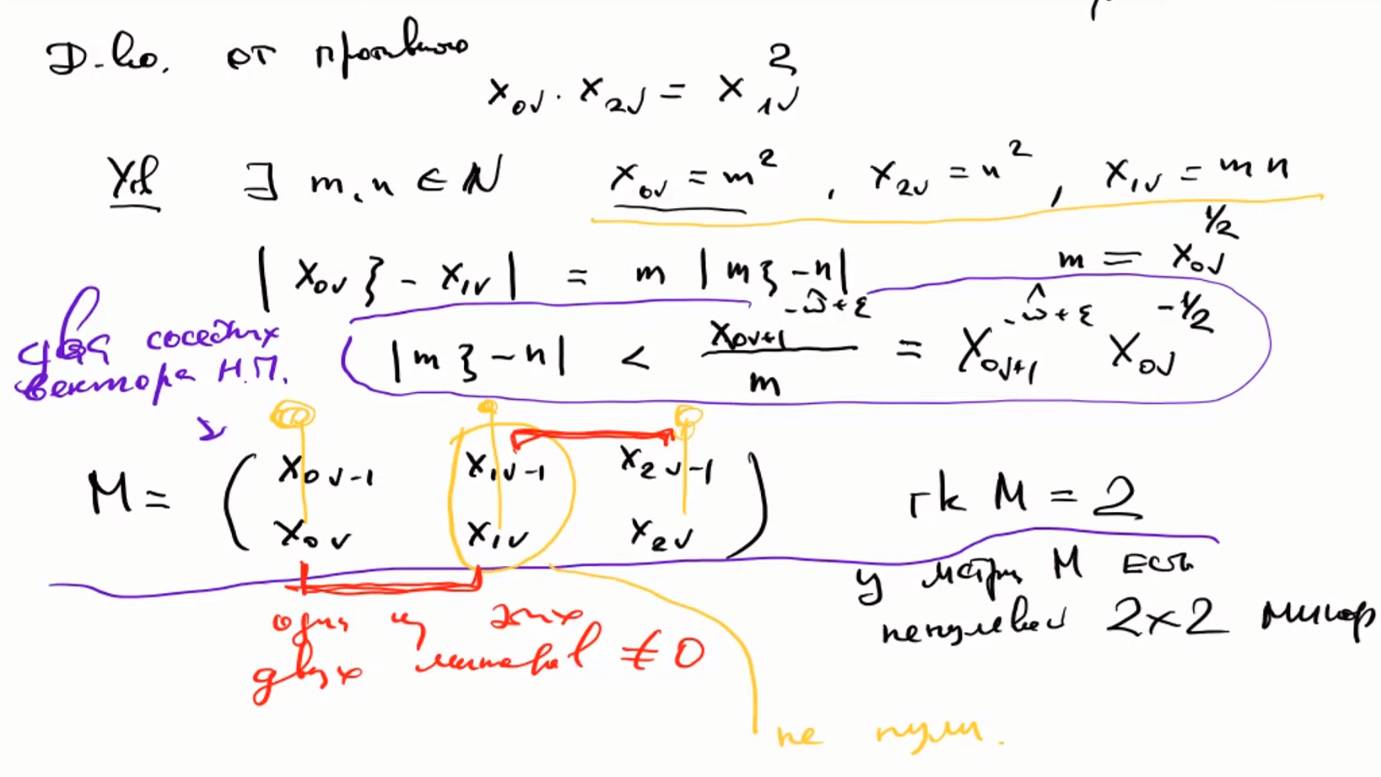 Д-во. от противного
x₀ᵥ · x₂ᵥ = x₁ᵥ²
Утв ∃ m, n ∈ ℕ x₀ᵥ = m², x₂ᵥ = n², x₁ᵥ = m n
|x₀ᵥ ξ - x₁ᵥ| = m |m ξ - n| m = x₀ᵥ^{1/2}
два соседних
вектора Н.П.
|m ξ - n| < \frac{x_{0ν+1}^{-\hat{ω}+ε}}{m} = X_{0ν+1}^{-\hat{ω}+ε} X_{0ν}^{-1/2}
M = \begin{pmatrix} x_{0ν-1} & x_{1ν-1} & x_{2ν-1} \\ x_{0ν} & x_{1ν} & x_{2ν} \end{pmatrix} rk M = 2
у матриц M есть
ненулевой 2×2 минор
один из этих
двух миноров ≠ 0
не нули.